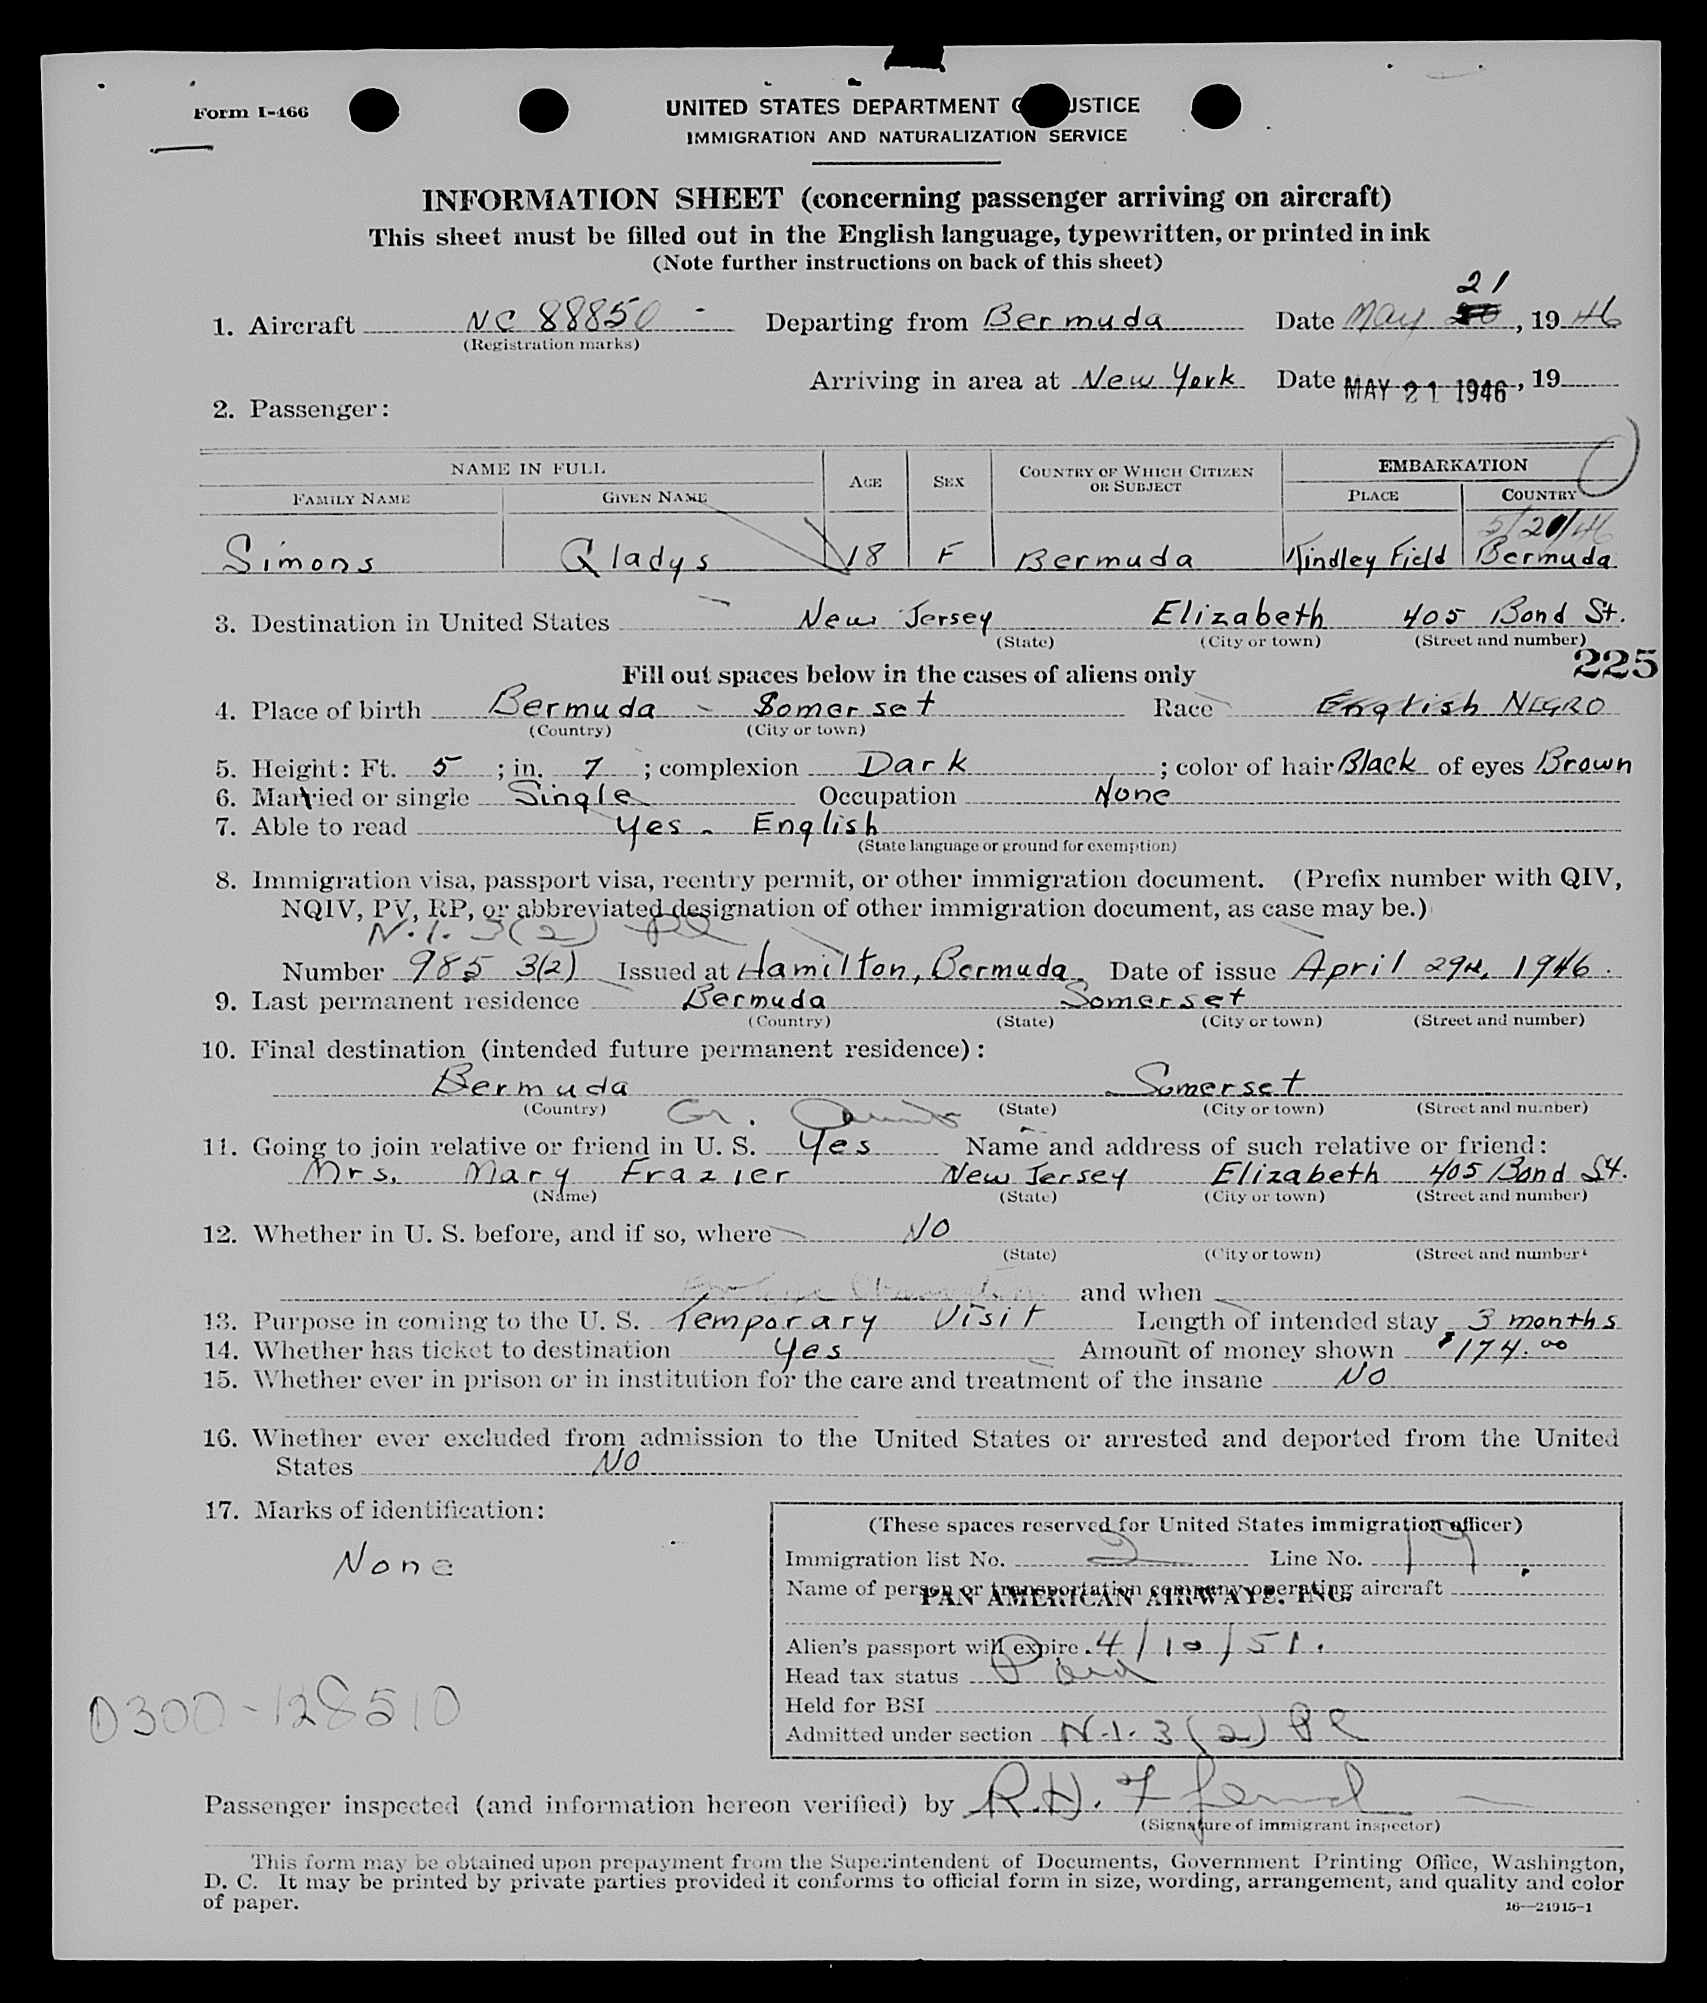 Form I-466
UNITED STATES DEPARTMENT OF JUSTICE
IMMIGRATION AND NATURALIZATION SERVICE
INFORMATION SHEET (concerning passenger arriving on aircraft)
This sheet must be filled out in the English language, typewritten, or printed in ink
(Note further instructions on back of this sheet)
21
1. Aircraft NC 88850 - Departing from Bermuda Date May 20, 19 46
(Registration marks)
Arriving in area at New York Date MAY 21 1946, 19
2. Passenger:
NAME IN FULL AGE SEX COUNTRY OF WHICH CITIZEN OR SUBJECT EMBARKATION
FAMILY NAME GIVEN NAME PLACE COUNTRY
5/20/46
Simons Gladys 18 F Bermuda Kindley Field Bermuda
3. Destination in United States New Jersey Elizabeth 405 Bond St.
(State) (City or town) (Street and number)
225
Fill out spaces below in the cases of aliens only
4. Place of birth Bermuda - Somerset Race English NEGRO
(Country) (City or town)
5. Height: Ft. 5 ; in. 7 ; complexion Dark ; color of hair Black of eyes Brown
6. Married or single Single Occupation None
7. Able to read Yes - English
(State language or ground for exemption)
8. Immigration visa, passport visa, reentry permit, or other immigration document. (Prefix number with QIV,
NQIV, PV, RP, or abbreviated designation of other immigration document, as case may be.)
N.I. 3(2) PL
Number 985 3(2) Issued at Hamilton, Bermuda Date of issue April 29th, 1946.
9. Last permanent residence Bermuda Somerset
(Country) (State) (City or town) (Street and number)
10. Final destination (intended future permanent residence):
Bermuda Somerset
(Country) (State) (City or town) (Street and number)
11. Going to join relative or friend in U. S. Yes Name and address of such relative or friend:
Mrs. Mary Frazier New Jersey Elizabeth 405 Bond St.
(Name) (State) (City or town) (Street and number)
12. Whether in U. S. before, and if so, where NO
(State) (City or town) (Street and number)
and when
13. Purpose in coming to the U. S. Temporary Visit Length of intended stay 3 months
14. Whether has ticket to destination Yes Amount of money shown $174.00
15. Whether ever in prison or in institution for the care and treatment of the insane NO
16. Whether ever excluded from admission to the United States or arrested and deported from the United
States NO
17. Marks of identification:
None
(These spaces reserved for United States immigration officer)
Immigration list No. 2 Line No. 19
Name of person or transportation company operating aircraft
PAN AMERICAN AIRWAYS, INC.
Alien's passport will expire 4/10/51.
Head tax status Paid
Held for BSI
Admitted under section N.I. 3(2) PL
0300-128510
Passenger inspected (and information hereon verified) by R.H.
(Signature of immigrant inspector)
This form may be obtained upon prepayment from the Superintendent of Documents, Government Printing Office, Washington,
D. C. It may be printed by private parties provided it conforms to official form in size, wording, arrangement, and quality and color
of paper.
16—24915-1